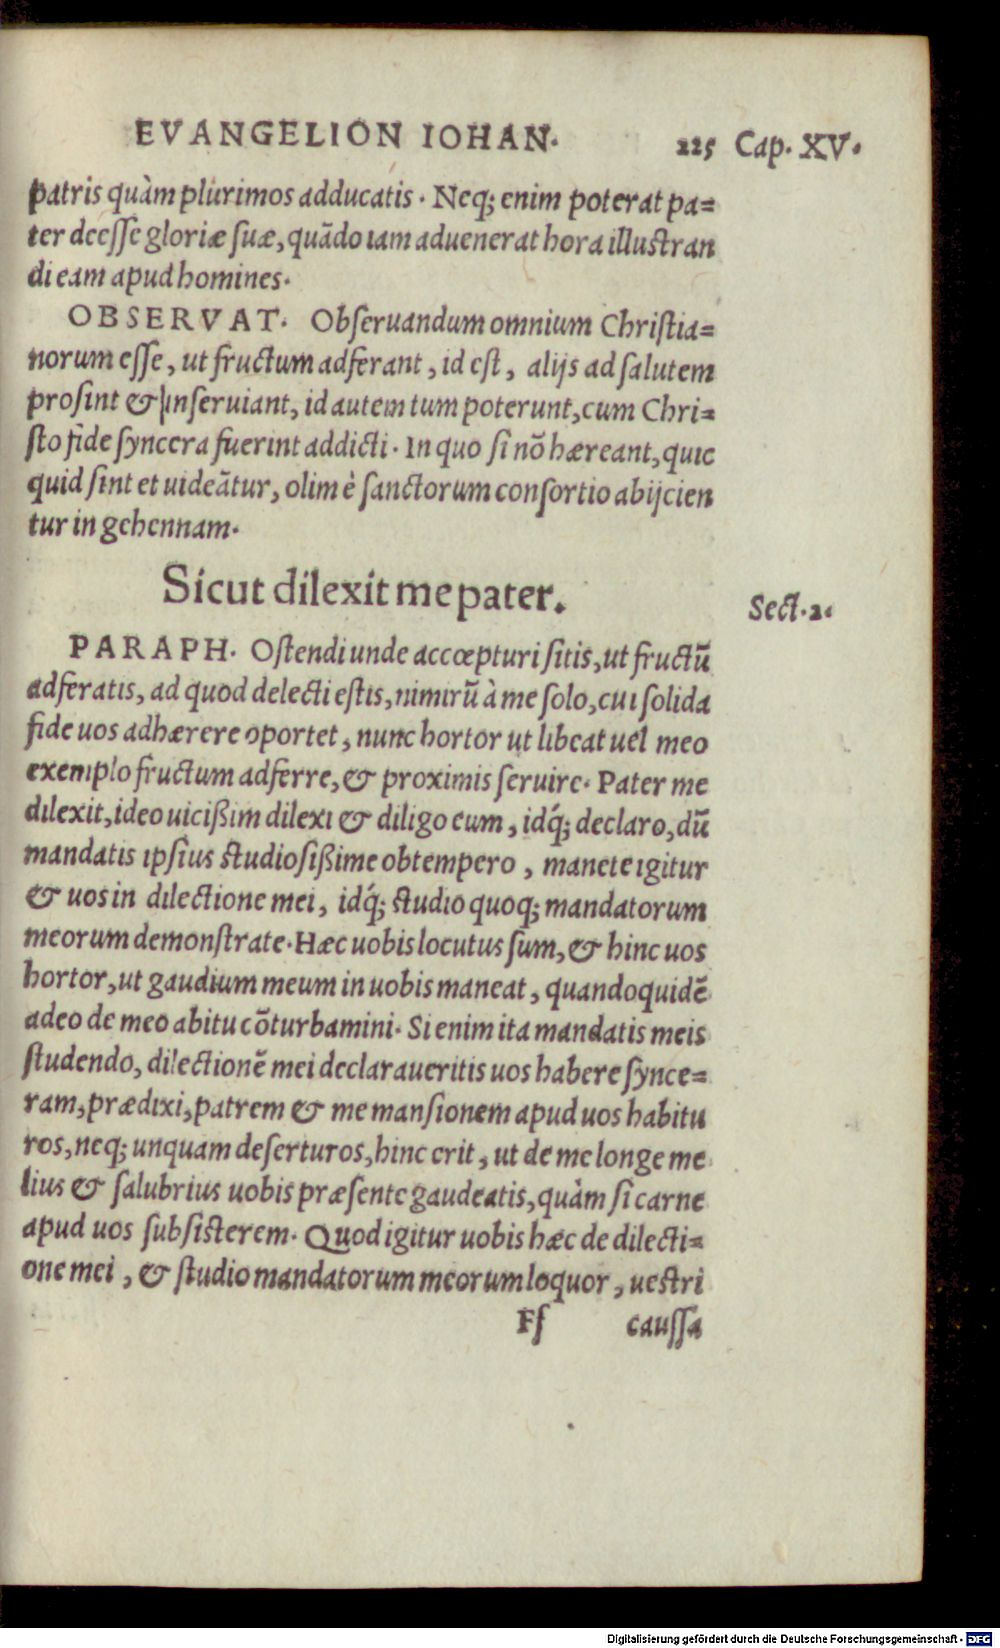 EVANGELION IOHAN. 225 Cap. XV.
patris quàm plurimos adducatis. Neq; enim poterat pa=
ter deesse gloriæ suæ, quãdo iam aduenerat hora illustran
di eam apud homines.
OBSERVAT. Obseruandum omnium Christia=
norum esse, ut fructum adferant, id est, alijs ad salutem
prosint & inseruiant, id autem tum poterunt, cum Chri=
sto fide syncera fuerint addicti. In quo si nõ hæreant, quic
quid sint et uideãtur, olim è sanctorum consortio abijcien
tur in gehennam.
Sicut dilexit me pater.
Sect. 2.
PARAPH. Ostendi unde accœpturi sitis, ut fructũ
adferatis, ad quod delecti estis, nimirũ à me solo, cui solida
fide uos adhærere oportet, nunc hortor ut libeat uel meo
exemplo fructum adferre, & proximis seruire. Pater me
dilexit, ideo uicißim dilexi & diligo eum, idq́; declaro, dũ
mandatis ipsius studiosißime obtempero, manete igitur
& uos in dilectione mei, idq́; studio quoq; mandatorum
meorum demonstrate. Hæc uobis locutus sum, & hinc uos
hortor, ut gaudium meum in uobis maneat, quandoquidẽ
adeo de meo abitu cõturbamini. Si enim ita mandatis meis
studendo, dilectionẽ mei declaraueritis uos habere synce=
ram, prædixi, patrem & me mansionem apud uos habitu
ros, neq; unquam deserturos, hinc erit, ut de me longe me
lius & salubrius uobis præsente gaudeatis, quàm si carne
apud uos subsisterem. Quod igitur uobis hæc de dilecti=
one mei, & studio mandatorum meorum loquor, uestri
Ff caussa
Digitalisierung gefördert durch die Deutsche Forschungsgemeinschaft - DFG